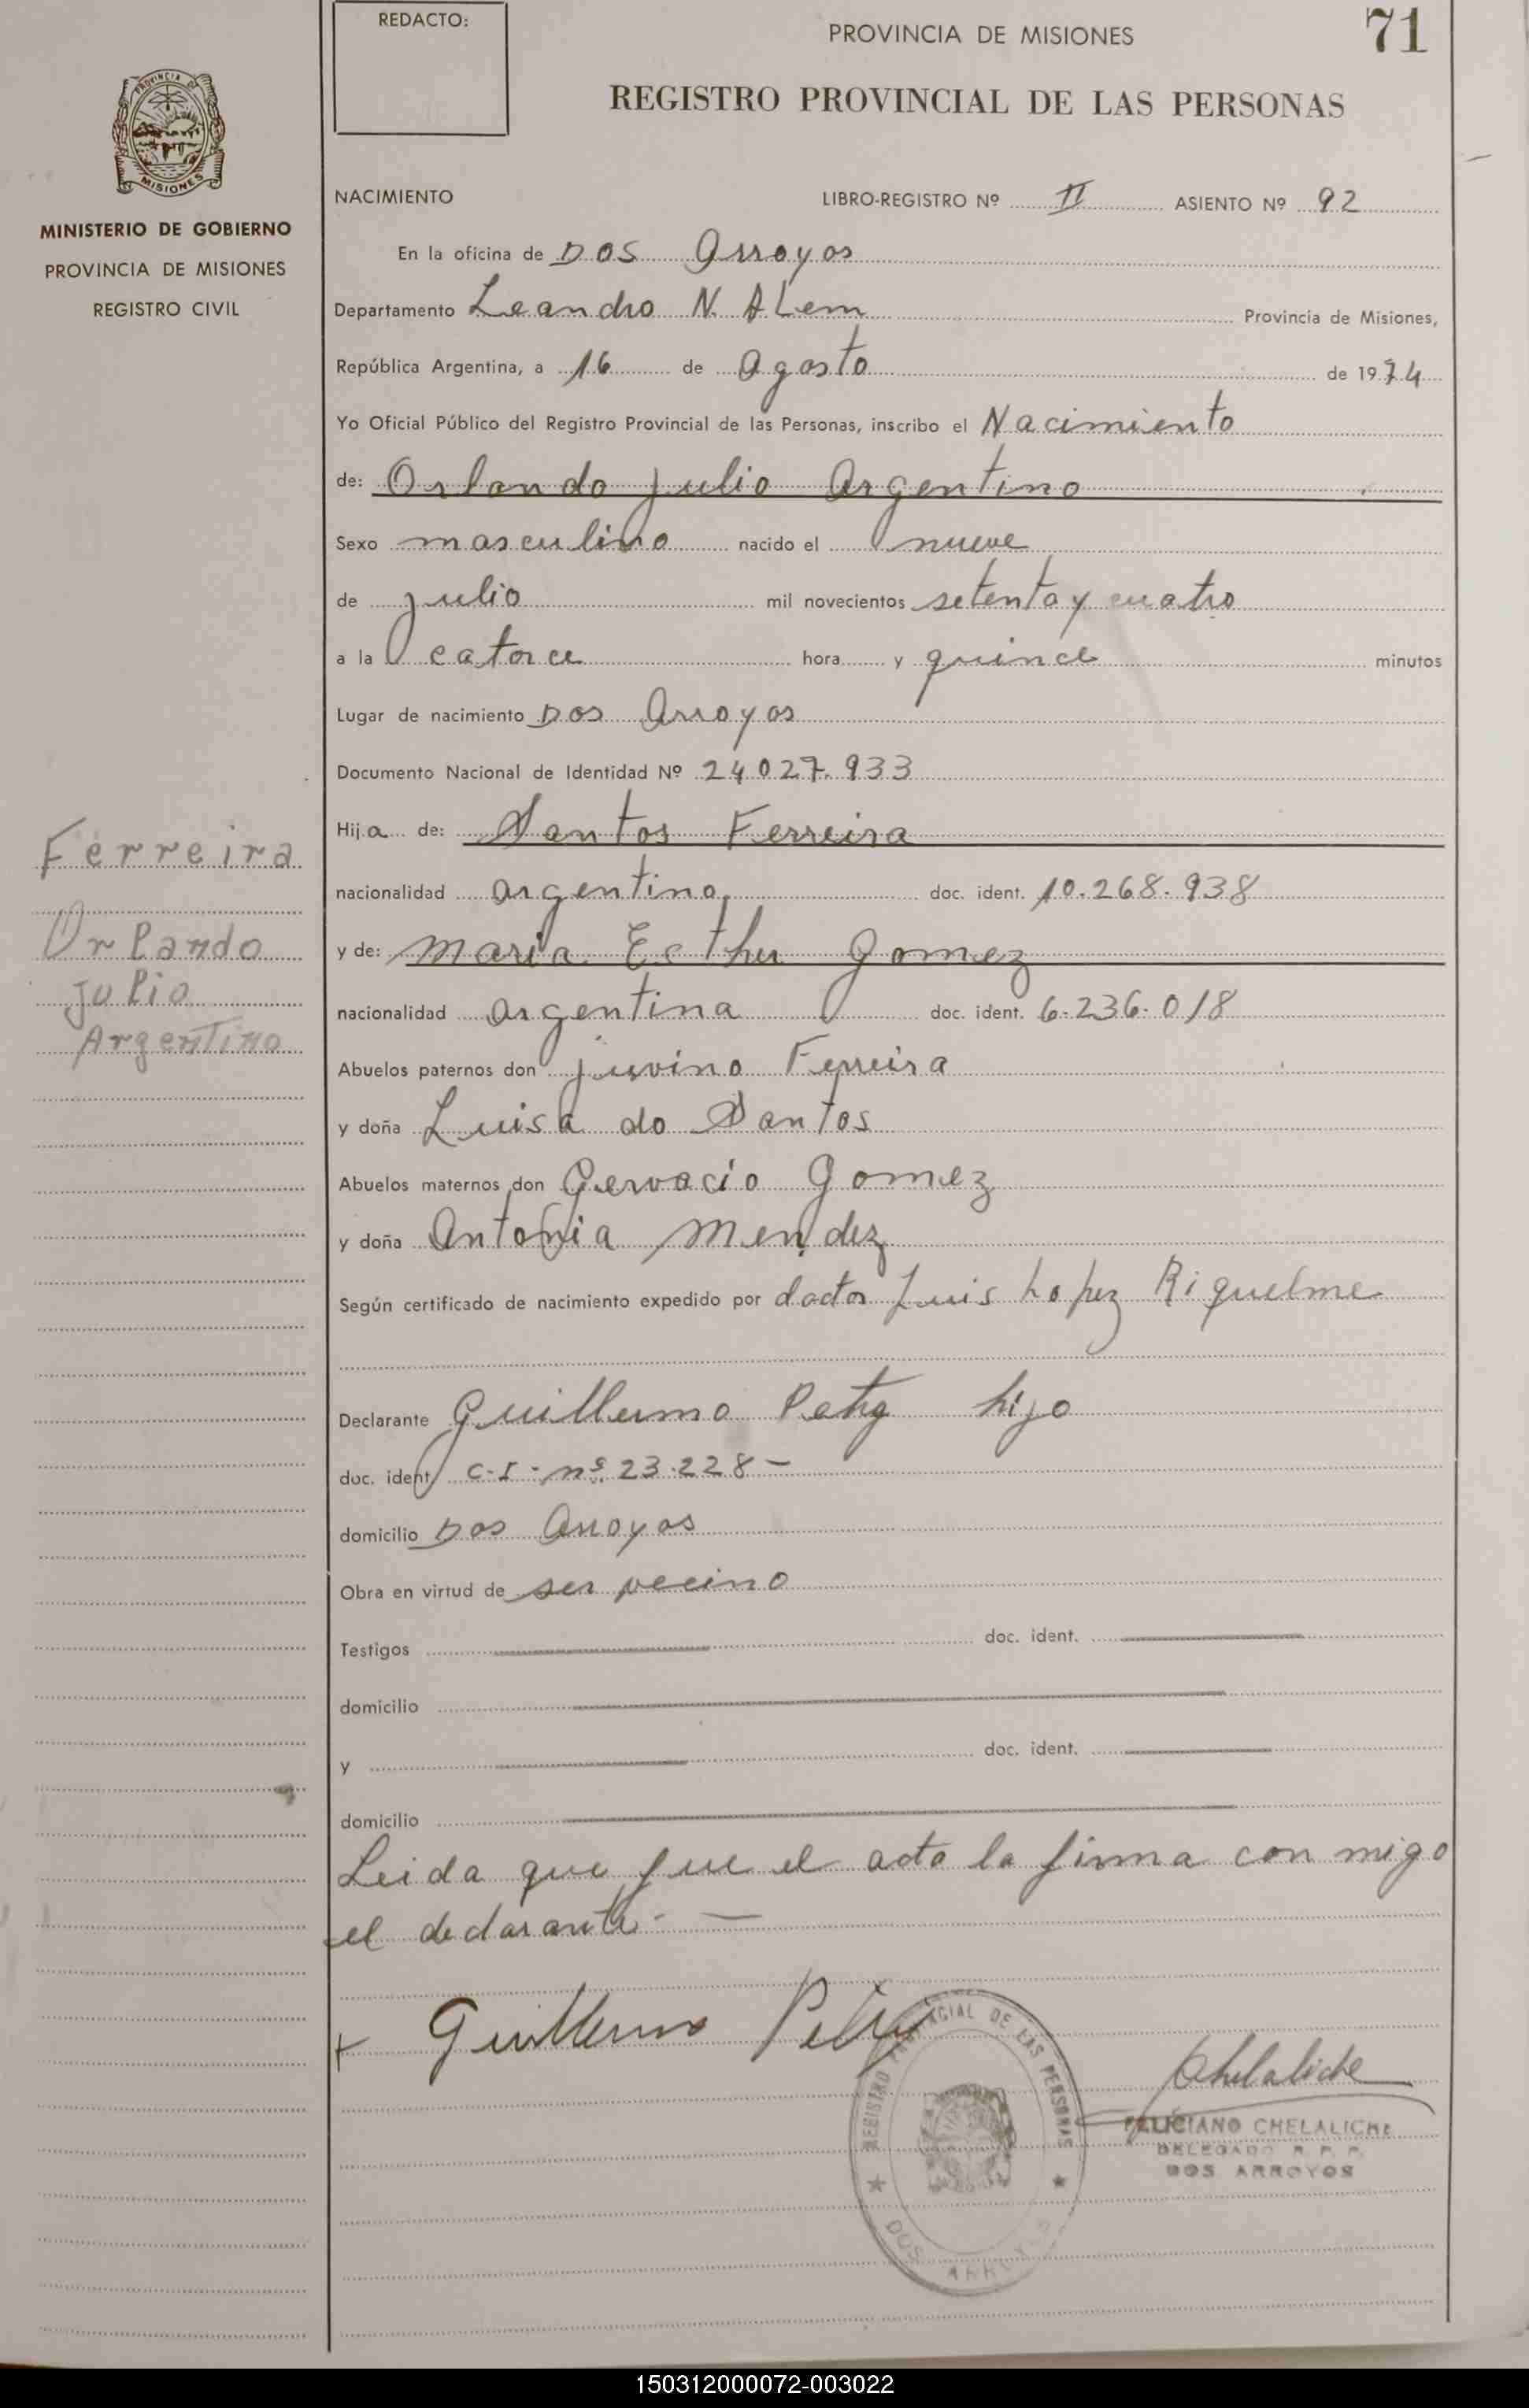 REDACTO:
PROVINCIA DE MISIONES
71
REGISTRO PROVINCIAL DE LAS PERSONAS
PROVINCIA DE
MISIONES
MINISTERIO DE GOBIERNO
PROVINCIA DE MISIONES
REGISTRO CIVIL
NACIMIENTO LIBRO-REGISTRO Nº II ASIENTO Nº 92
En la oficina de Dos Arroyos
Departamento Leandro N. ALem Provincia de Misiones,
República Argentina, a 16 de Agosto de 1974
Yo Oficial Público del Registro Provincial de las Personas, inscribo el Nacimiento
de: Orlando Julio Argentino
Sexo masculino nacido el nueve
de Julio mil novecientos setenta y cuatro
a la catorce hora y quince minutos
Lugar de nacimiento Dos Arroyos
Documento Nacional de Identidad Nº 24.027.933
Hija de: Santos Ferreira
nacionalidad argentino doc. ident. 10.268.938
y de: Maria Ecther Gomez
nacionalidad Argentina doc. ident. 6.236.018
Abuelos paternos don Juvino Ferreira
y doña Luisa do Santos
Abuelos maternos don Gervacio Gomez
y doña Antonia Mendez
Según certificado de nacimiento expedido por doctor Luis Lopez Riquelme
Declarante Guillermo Petry hijo
doc. ident. C.I. nº 23.228-
domicilio Dos Arroyos
Obra en virtud de ser vecino
Testigos doc. ident.
domicilio
y doc. ident.
domicilio
Leida que fue el acta la firma con migo
el declarante. —
Guillermo Petry
Chelaliche
FELICIANO CHELALICHE
DELEGADO R. P. P.
DOS ARROYOS
REGISTRO PROVINCIAL DE LAS PERSONAS
DOS ARROYOS
Ferreira
Orlando
Julio
Argentino
150312000072-003022